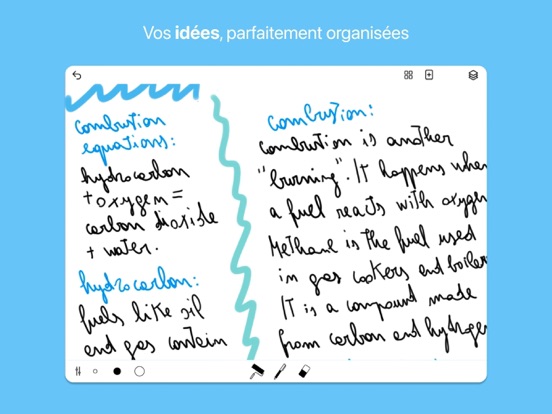 Vos idées, parfaitement organisées
combustion
equations:
hydrocarbon
+ oxygen =
carbon dioxide
+ water.
hydrocarbon:
fuels like oil
and gas contain
combustion:
combustion is another
"burning". It happens when
a fuel reacts with oxygen
Methane is the fuel used
in gas cookers and boiler
It is a compound made
from carbon and hydroge